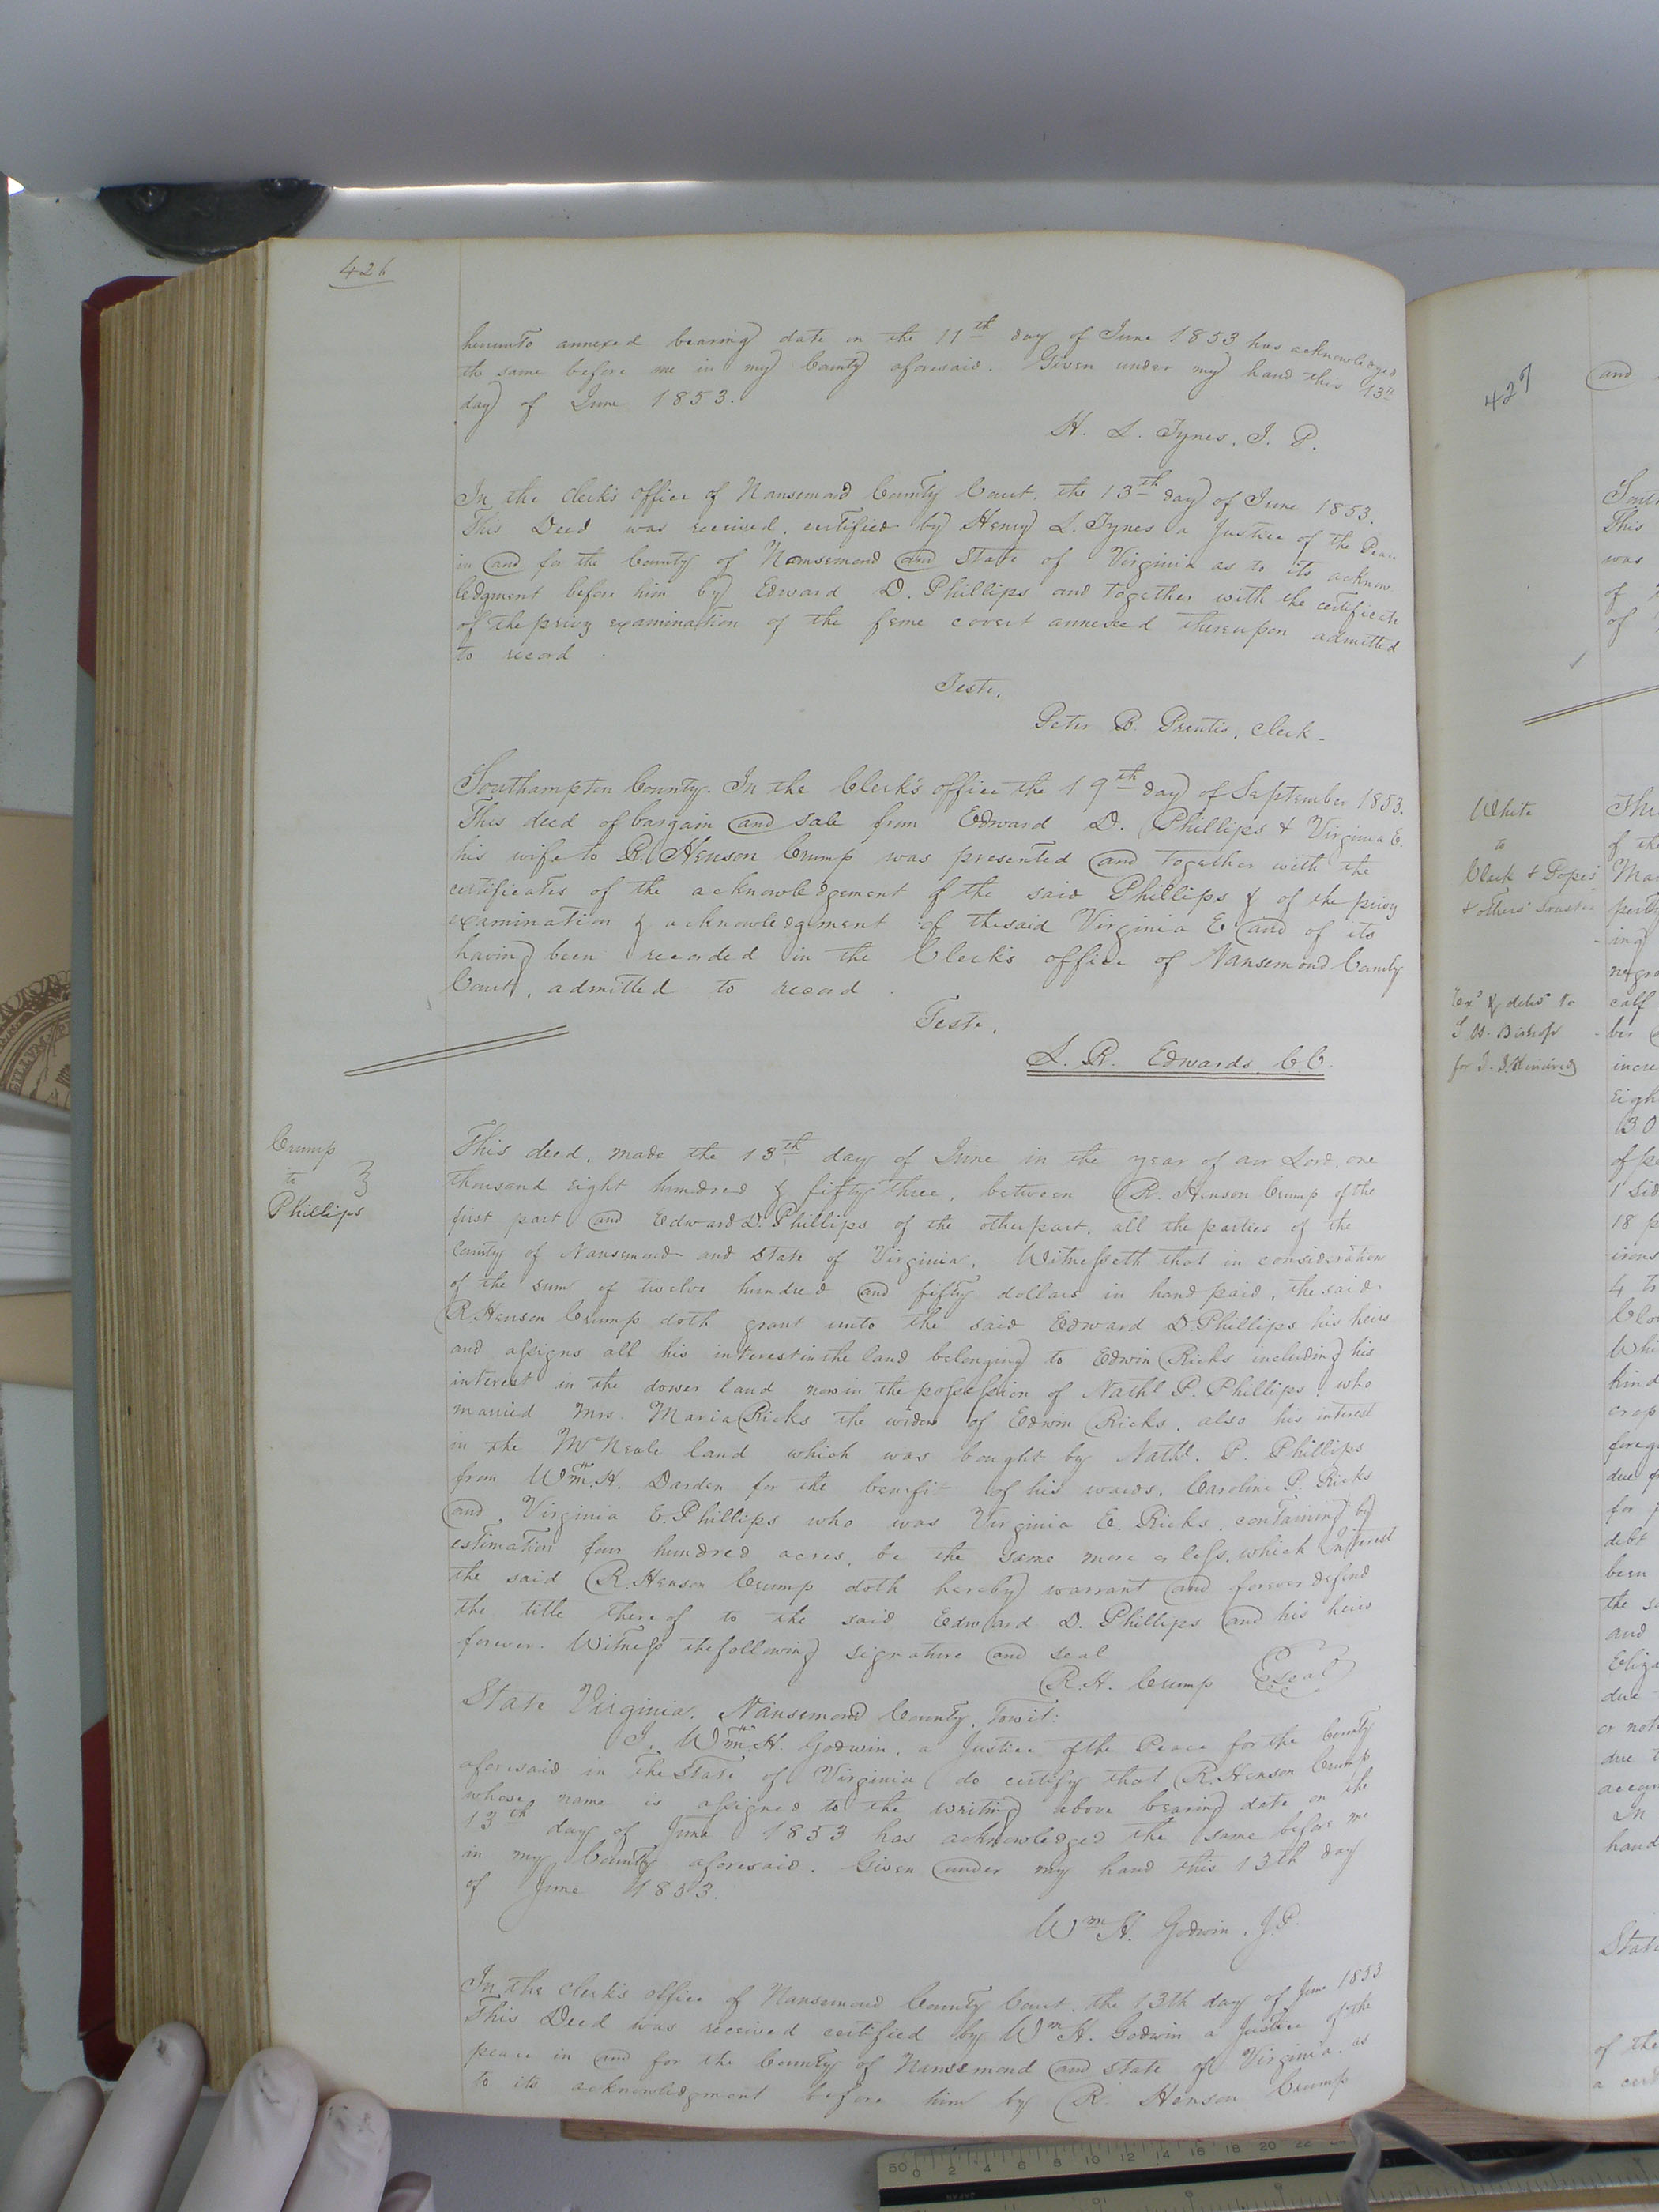 426
hereunto annexed bearing date on the 11th day of June 1853 has acknowledged
the same before me in my County aforesaid. Given under my hand this 13th
day of June 1853.
H. L. Tynes, J. P.
In the clerk's office of Nansemond County Court. the 13th day of June 1853.
This Deed was received, certified by Henry L. Tynes a Justice of the Peace
in and for the County of Nansemond and State of Virginia as to its acknow
ledgment before him by Edward D. Phillips and together with the certificate
of the privy examination of the feme covert annexed thereupon admitted
to record.
Teste,
Peter B. Prentis, Clerk
Southampton County. In the Clerk's office the 19th day of September 1853.
This deed of bargain and sale from Edward D. Phillips & Virginia E.
his wife to R. Henson Crump was presented and together with the
certificates of the acknowledgement of the said Phillips & of the privy
examination & acknowledgment of the said Virginia E and of its
having been recorded in the Clerk's office of Nansemond County
Court, admitted to record.
Teste,
L. R. Edwards, C.C.
Crump
to
Phillips
This deed, made the 13th day of June in the year of our Lord, one
thousand eight hundred & fifty three, between R. Henson Crump of the
first part and Edward D. Phillips of the other part, all the parties of the
County of Nansemond and State of Virginia. Witnesseth that in consideration
of the sum of twelve hundred and fifty dollars in hand paid, the said
R. Henson Crump doth grant unto the said Edward D. Phillips his heirs
and assigns all his interest in the land belonging to Edwin Ricks including his
interest in the dower land now in the possession of Nathl P. Phillips, who
married Mrs. Maria Ricks the widow of Edwin Ricks, also his interest
in the McNeale land which was bought by Nathl. P. Phillips
from Wm. H. Darden for the benefit of his wards, Caroline P. Ricks
and Virginia E. Phillips who was Virginia E. Ricks, containing by
estimation four hundred acres, be the same more or less, which Interest
the said R. Henson Crump doth hereby warrant and forever defend
the title thereof to the said Edward D. Phillips and his heirs
forever. Witness the following signature and seal
R. H. Crump Seal
State Virginia, Nansemond County, Towit:
I, Wm. H. Godwin, a Justice of the Peace for the County
aforesaid in the State of Virginia do certify that R. Henson Crump
whose name is assigned to the writing above bearing date on the
13th day of June 1853 has acknowledged the same before me
in my County aforesaid. Given under my hand this 13th day
of June 1853.
Wm H. Godwin, J.P.
In the Clerk's office of Nansemond County Court. the 13th day of June 1853
This Deed was received certified by Wm H. Godwin a Justice of the
peace in and for the County of Nansemond and state of Virginia. as
to its acknowledgment before him by R. Henson Crump
427
and
This
was
of
of
White
to
Clark & Popes
& others Trustee
Exd & deld to
for J. J. Kindred
of the
calf
incre
eigh
130
18
4
hind
crop
due
for
debt
been
the
and
Eliza
due
or not
due
In
hand
State
of the
50 0 2 4 6 8 10 12 14 16 18 20 22